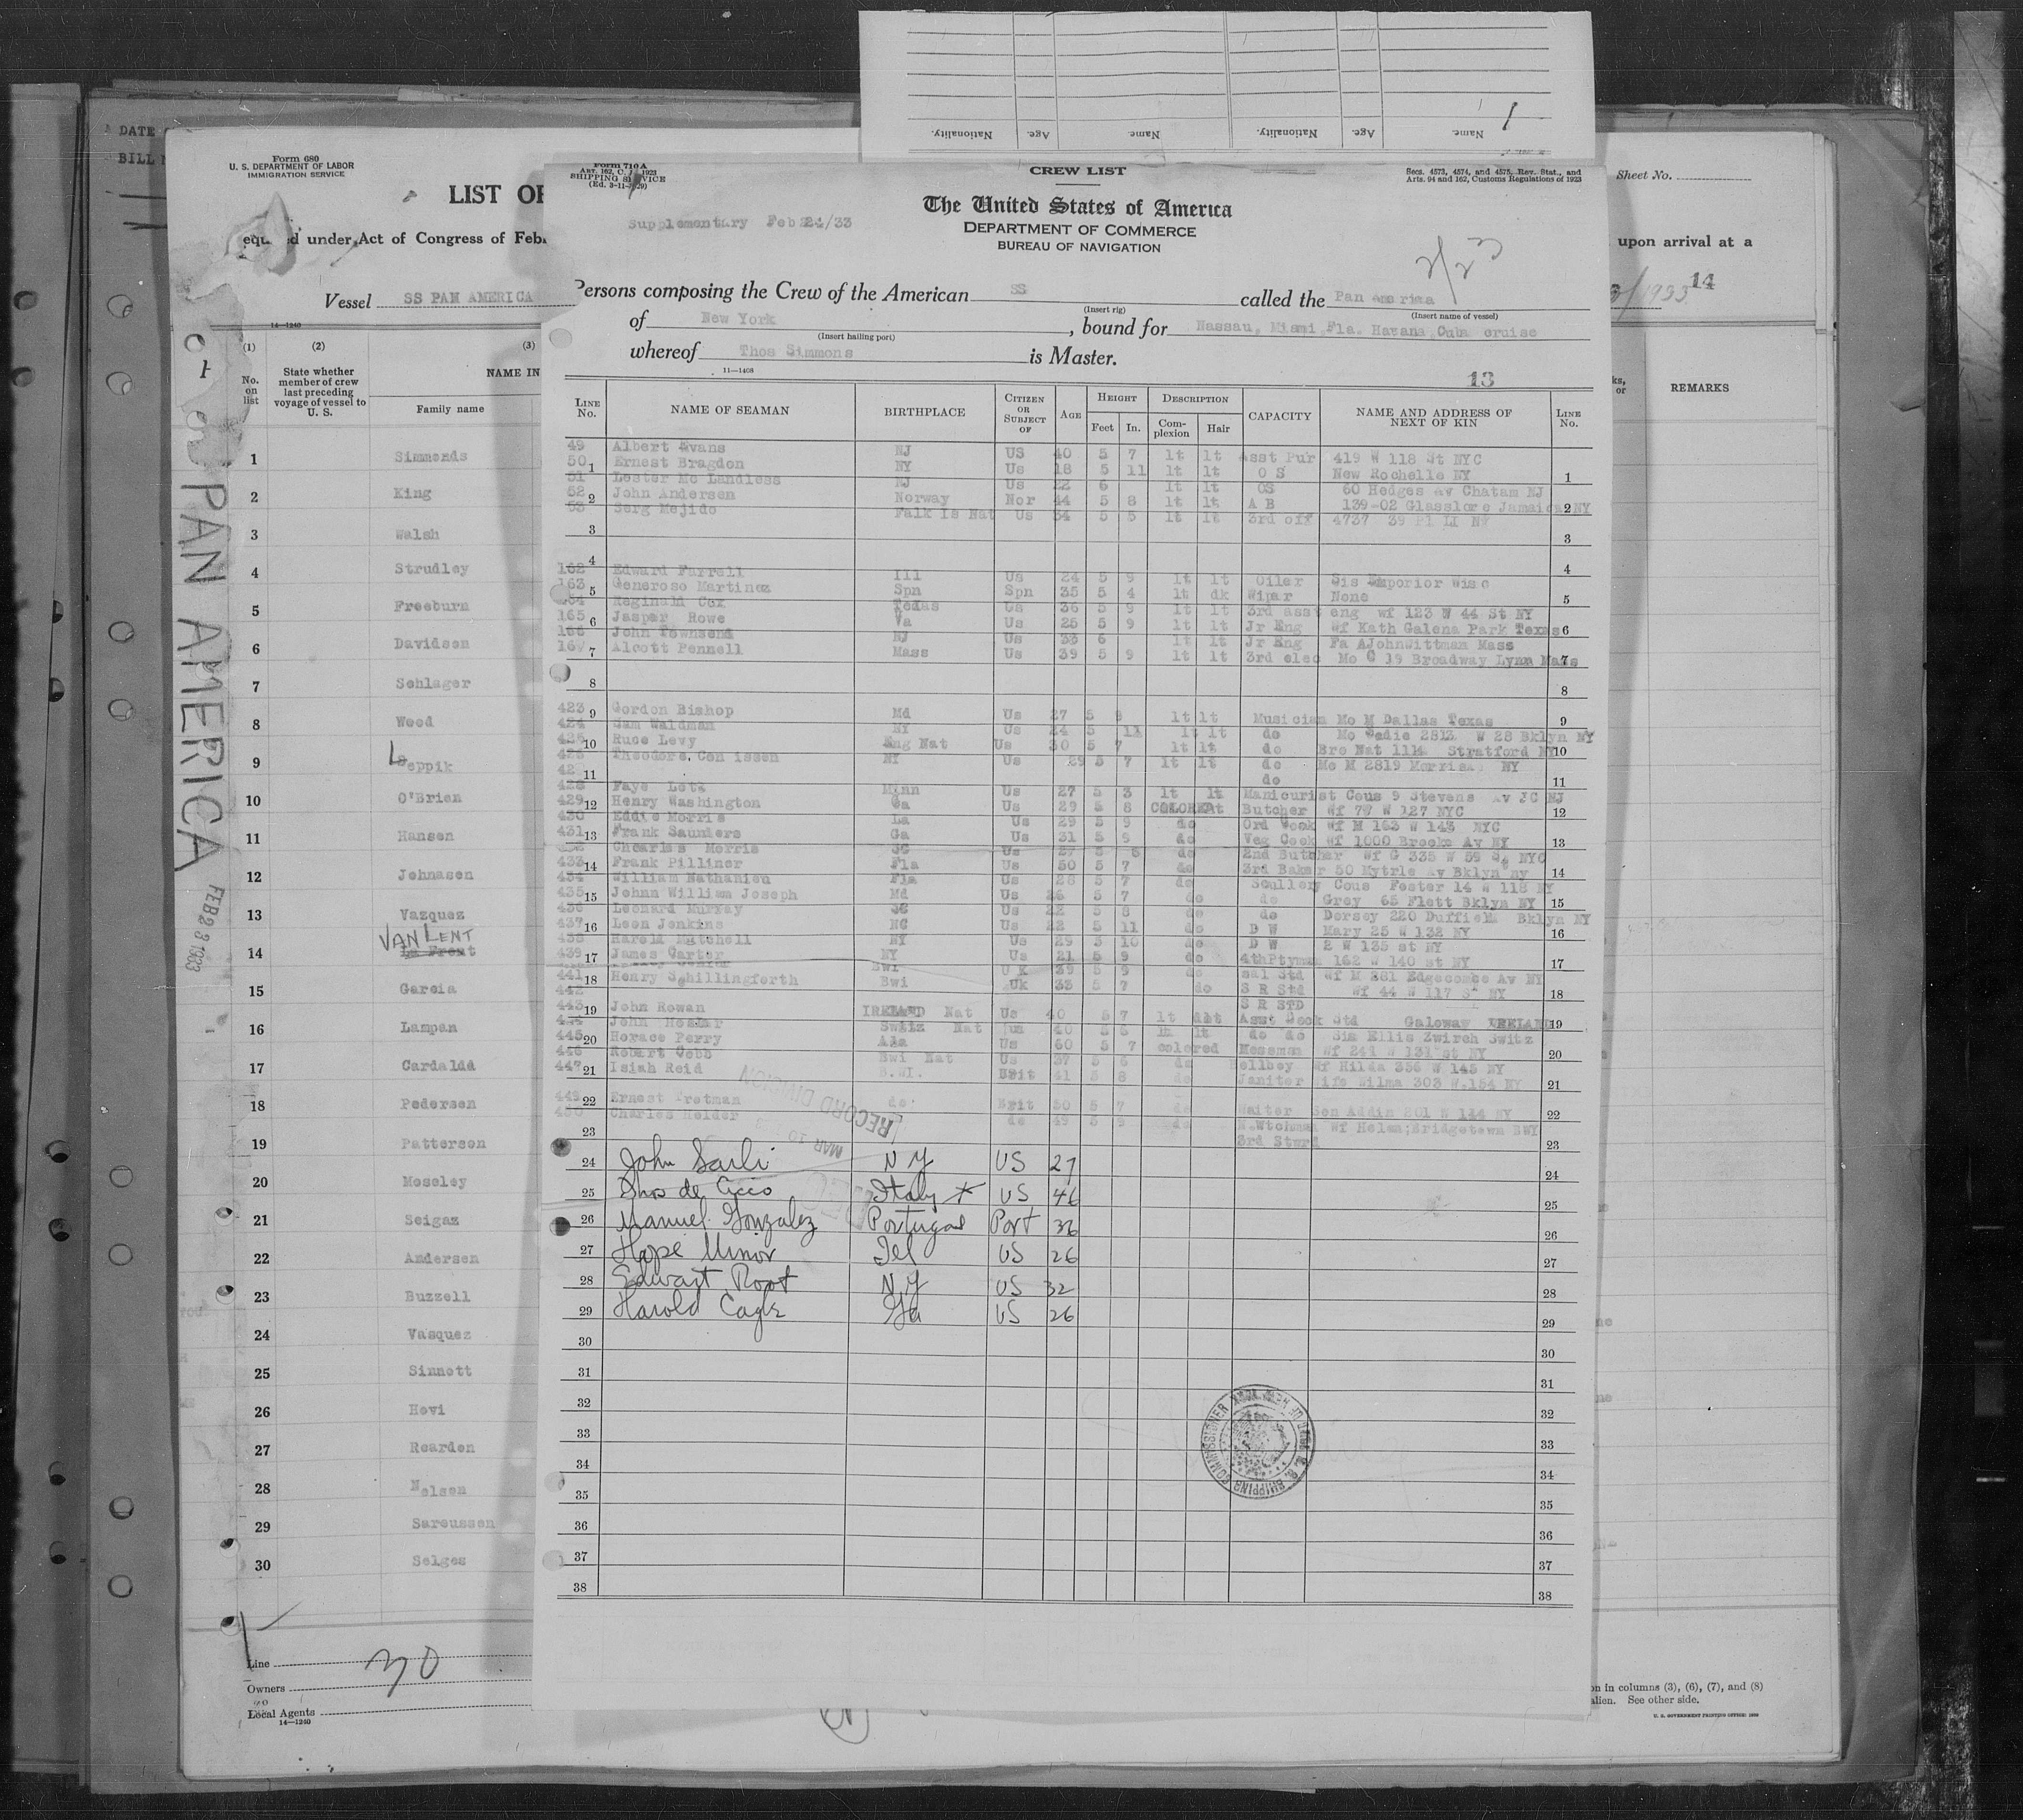 DATE
BILL
Form 680
U. S. DEPARTMENT OF LABOR
IMMIGRATION SERVICE
LIST OF
under Act of Congress of Feb
Vessel SS PAN AMERICA
14—1240
(1) (2) (3)
No. on list
State whether member of crew last preceding voyage of vessel to U. S.
NAME IN
Family name
1 Simmonds
2 King
3 Walsh
4 Strudley
5 Freeburn
6 Davidson
7 Schlager
8 Wood
9 Leppik
10 O'Brien
11 Hansen
12 Johnasen
13 Vazquez
VAN LENT
14
15 Garcia
16 Lampan
17 Cardalda
18 Pedersen
19 Patterson
20 Moseley
21 Seigaz
22 Andersen
23 Buzzell
24 Vasquez
25 Sinnott
26 Hevi
27 Rearden
28 Nelsen
29 Sareussen
30 Selges
Line
30
Owners
Local Agents
14—1240
PAN AMERICA
FEB 23 1933
Name. Age. Nationality. Name. Age. Nationality.
1
Form 710 A
ART. 162, C. R. 1923
SHIPPING SERVICE
(Ed. 3-11-1929)
CREW LIST
Secs. 4573, 4574, and 4575, Rev. Stat., and
Arts. 94 and 162, Customs Regulations of 1923
Supplementary Feb 24/33
The United States of America
DEPARTMENT OF COMMERCE
BUREAU OF NAVIGATION
2/23
Persons composing the Crew of the American SS called the Pan America
(Insert rig) (Insert name of vessel)
of New York, bound for Nassau, Miami Fla. Havana Cuba cruise
(Insert hailing port)
whereof Thos Simmons is Master.
11—1408
13
LINE No. NAME OF SEAMAN BIRTHPLACE CITIZEN OR SUBJECT OF AGE HEIGHT DESCRIPTION CAPACITY NAME AND ADDRESS OF NEXT OF KIN LINE No.
Feet In. Complexion Hair
49 Albert Evans NJ US 40 5 7 lt lt Asst Pur 419 W 118 St NYC
50 Ernest Bragdon NY Us 18 5 11 lt lt O S New Rochelle NY
51 Lester Mc Landless NJ Us 22 6 lt lt OS 60 Hedges av Chatam NJ
52 John Andersen Norway Nor 44 5 8 lt lt A B 139-02 Glasslore Jamaica NY
53 Serg Mejido Falk Is Nat Us 34 5 5 lt lt 3rd off 4737 39 Pl LI NY
162 Edward Farrell Ill Us 24 5 9 lt lt Oiler Sis Emporior Wisc
163 Generoso Martinez Spn Spn 35 5 4 lt dk Wipar None
164 Reginald Cox Texas Us 36 5 9 lt lt 3rd asst eng wf 123 W 44 St NY
165 Jasper Rowe Va Us 25 5 9 lt lt Jr Eng Wf Kath Galena Park Texas
166 John Townsend NJ Us 33 6 lt lt Jr Eng Fa AJohnWittman Mass
167 Alcott Pennell Mass Us 39 5 9 lt lt 3rd elec Mo C 19 Broadway Lynn Mass
423 Gordon Bishop Md Us 27 5 lt lt Musician Mo M Dallas Texas
424 Sam Waldman NY Us 24 5 11 lt lt do Mo Sadie 2812 W 28 Bklyn NY
425 Rube Levy Eng Nat Us 30 5 7 lt lt do Bro Nat 1114 Stratford NY
426 Theodore NY Us 29 5 7 lt lt do Mo M 2819 Morrisa NY
do
428 Faye Lotz Minn Us 27 5 3 lt lt Manicurist Cous 9 Stevens Av JC NJ
429 Henry Washington Ga Us 29 5 8 COLORED Butcher Wf 79 W 127 NYC
430 Eddie Morris La Us 29 5 9 do Ord Cook Wf M 163 W 143 NYC
431 Frank Saunders Ga Us 31 5 9 do Veg Cook Wf 1000 Brooks Av NY
432 Morris Us 27 5 do 2nd Butcher Wf G 335 W 59 St NYC
433 Frank Pilliner Fla Us 50 5 7 do 3rd Baker 50 Mytrle Av Bklyn ny
434 William Nathanieu Fla Us 28 5 7 do Scullery Cous Foster 14 W 118 NY
435 Johnn William Joseph Md Us 26 5 7 do do Grey 65 Flett Bklyn NY
436 Leonard Murray Us 22 5 8 do do Dorsey 220 Duffield Bklyn NY
437 Leon Jenkins NC Us 22 5 11 do D W Mary 25 W 132 NY
438 Harold Mitchell NY Us 29 5 10 do D W 2 W 135 st NY
439 James Carter NY Us 21 5 9 do 4thPtyman 162 W 140 st NY
BWI U K 39 5 9 do Wf M 281 Edgecombe Av NY
441 Henry Schillingforth Bwi Uk 33 5 7 do S R Std Wf 44 W 117 St NY
442 S R STD
443 John Rowan IRELAND Nat Us 40 5 7 lt Asst Deck Std Galoway IRELAND
444 John Switz Nat us 40 5 lt do do Sis Ellis Zwirch Switz
445 Horace Perry Ala Us 60 5 7 colored Messman Wf 241 W 131 st NY
446 Robert Cobb Bwi Nat Us 37 5 6 do Bellboy Wf Hilda 356 W 145 NY
447 Isiah Reid B.WI. Brit 41 5 8 do Janitor Wife Wilma 303 W.154 NY
449 Ernest Trotman do Brit 30 5 7 do Waiter Son Addin 201 W 144 NY
450 Charles Helder do 49 5 9 do N.Wtchman Wf Helen;Bridgetown BWI
3rd Stwrd
RECORD DIVISION
MAR 10
24 John Sarli N Y US 27 24
25 Thos de Cicco Italy US 46 25
26 Manuel Gonzalez Portugal Port 36 26
27 Hope Minor Del US 26 27
28 Edwart Root N.Y US 32 28
29 Harold Cagle Ga US 26 29
30 30
31 31
32 32
33 33
34 34
35 35
36 36
37 37
38 38
Sheet No.
upon arrival at a
1933 14
REMARKS
in columns (3), (6), (7), and (8)
alien. See other side.
U. S. GOVERNMENT PRINTING OFFICE